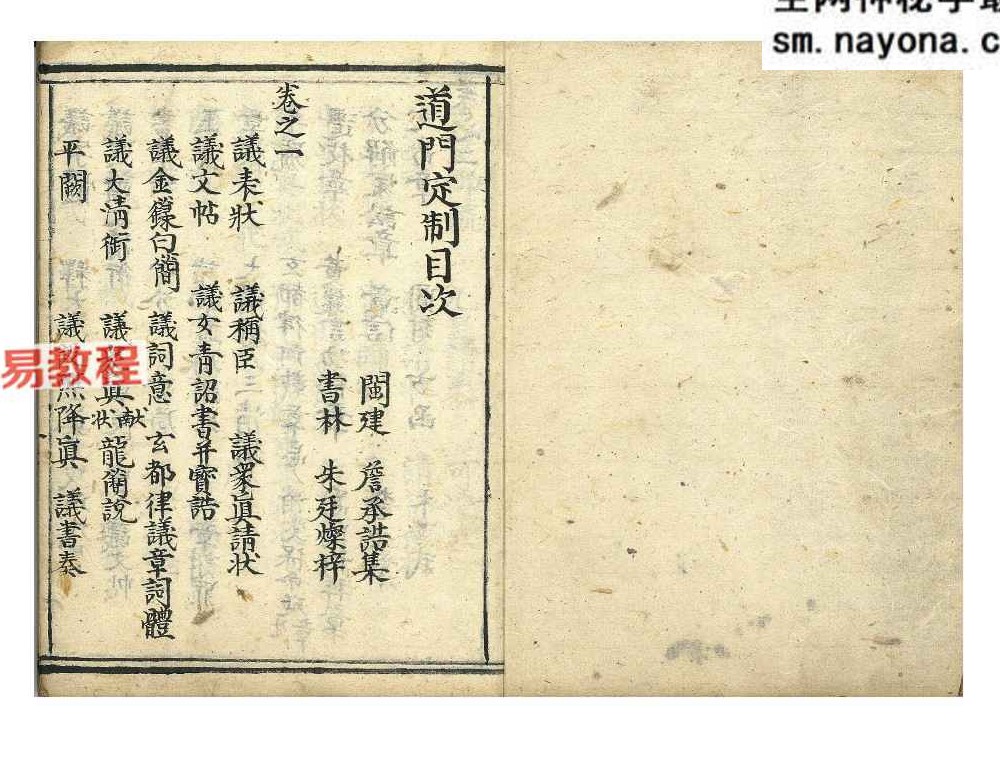 道門定制目次
閩建 詹承誥集
書林 朱廷燦梓
卷之一
議表狀 議稱臣 議衆眞請狀
議文帖 議女青詔書并寳誥
議金鐶白簡 議詞意 玄都律議章詞體
議大淸銜 議 眞獻狀 龍簡說
平闕 議 降眞 議書奏
sm.nayona.c
易教程